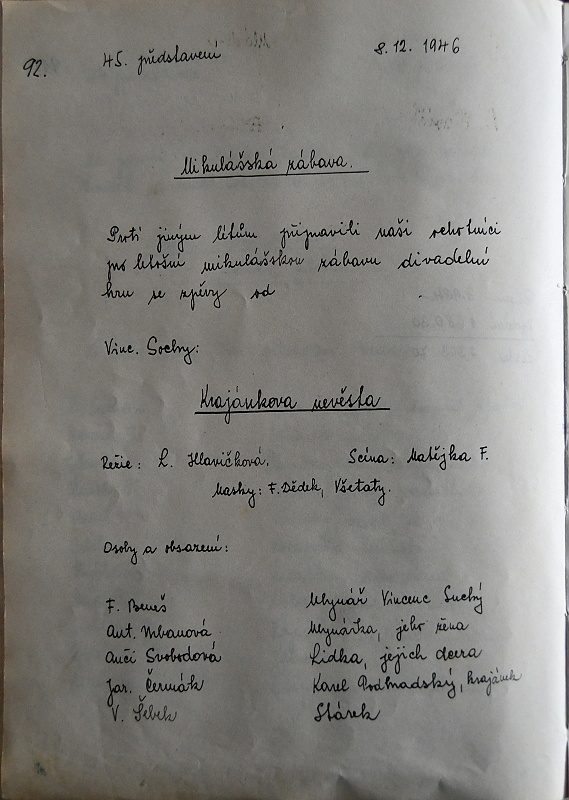 92.
45. představení 8.12. 1946
Mikulášská zábava.
Proti jiným létům připravili naši ochotníci
pro letošní mikulášskou zábavu divadelní
hru se zpěvy od
Vinc. Sochy:
Krajánkova nevěsta
Režie: L. Hlavičková. Scéna: Matějka F.
Masky: F. Dědek, Všetaty.
Osoby a obsazení:
F. Beneš Mlynář Vincenc Suchý
Ant. Urbanová Mlynářka, jeho žena
Anči Svobodová Lidka, jejich dcera
Jar. Čermák Karel Podhradský, krajánek
V. Šebek Stárek